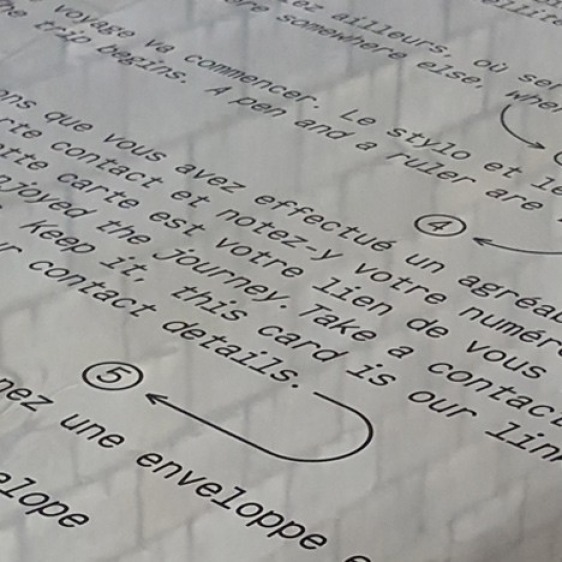 ez ailleurs, où ser
ere somewhere else, wher
voyage va commencer. Le stylo et le
he trip begins. A pen and a ruler are
4
ons que vous avez effectué un agréab
rte contact et notez-y votre numér
tte carte est votre lien de vous
njoyed the journey. Take a contact
Keep it, this card is our lin
r contact details.
5
nez une enveloppe
elope